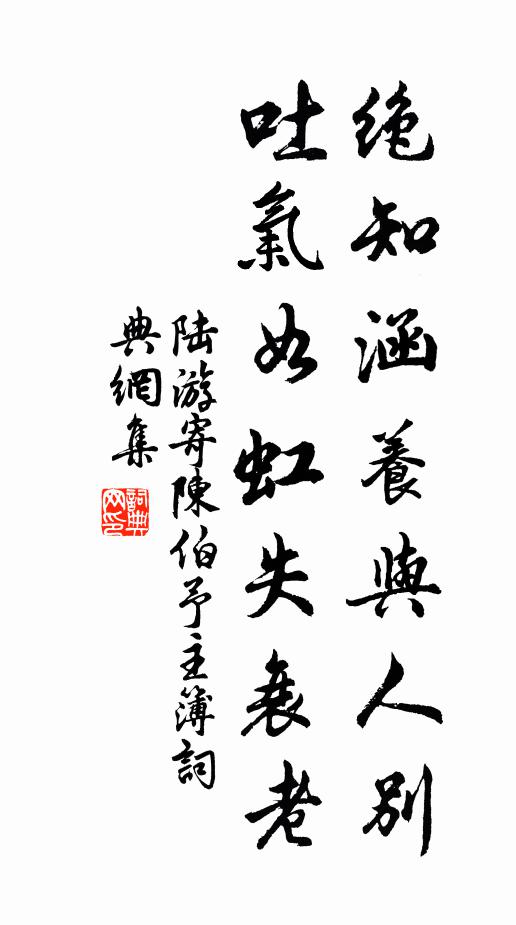 絶知涵養與人別
吐氣如虹失衰老
陸游寄陳伯予主簿詞
典網集
詞典
网印